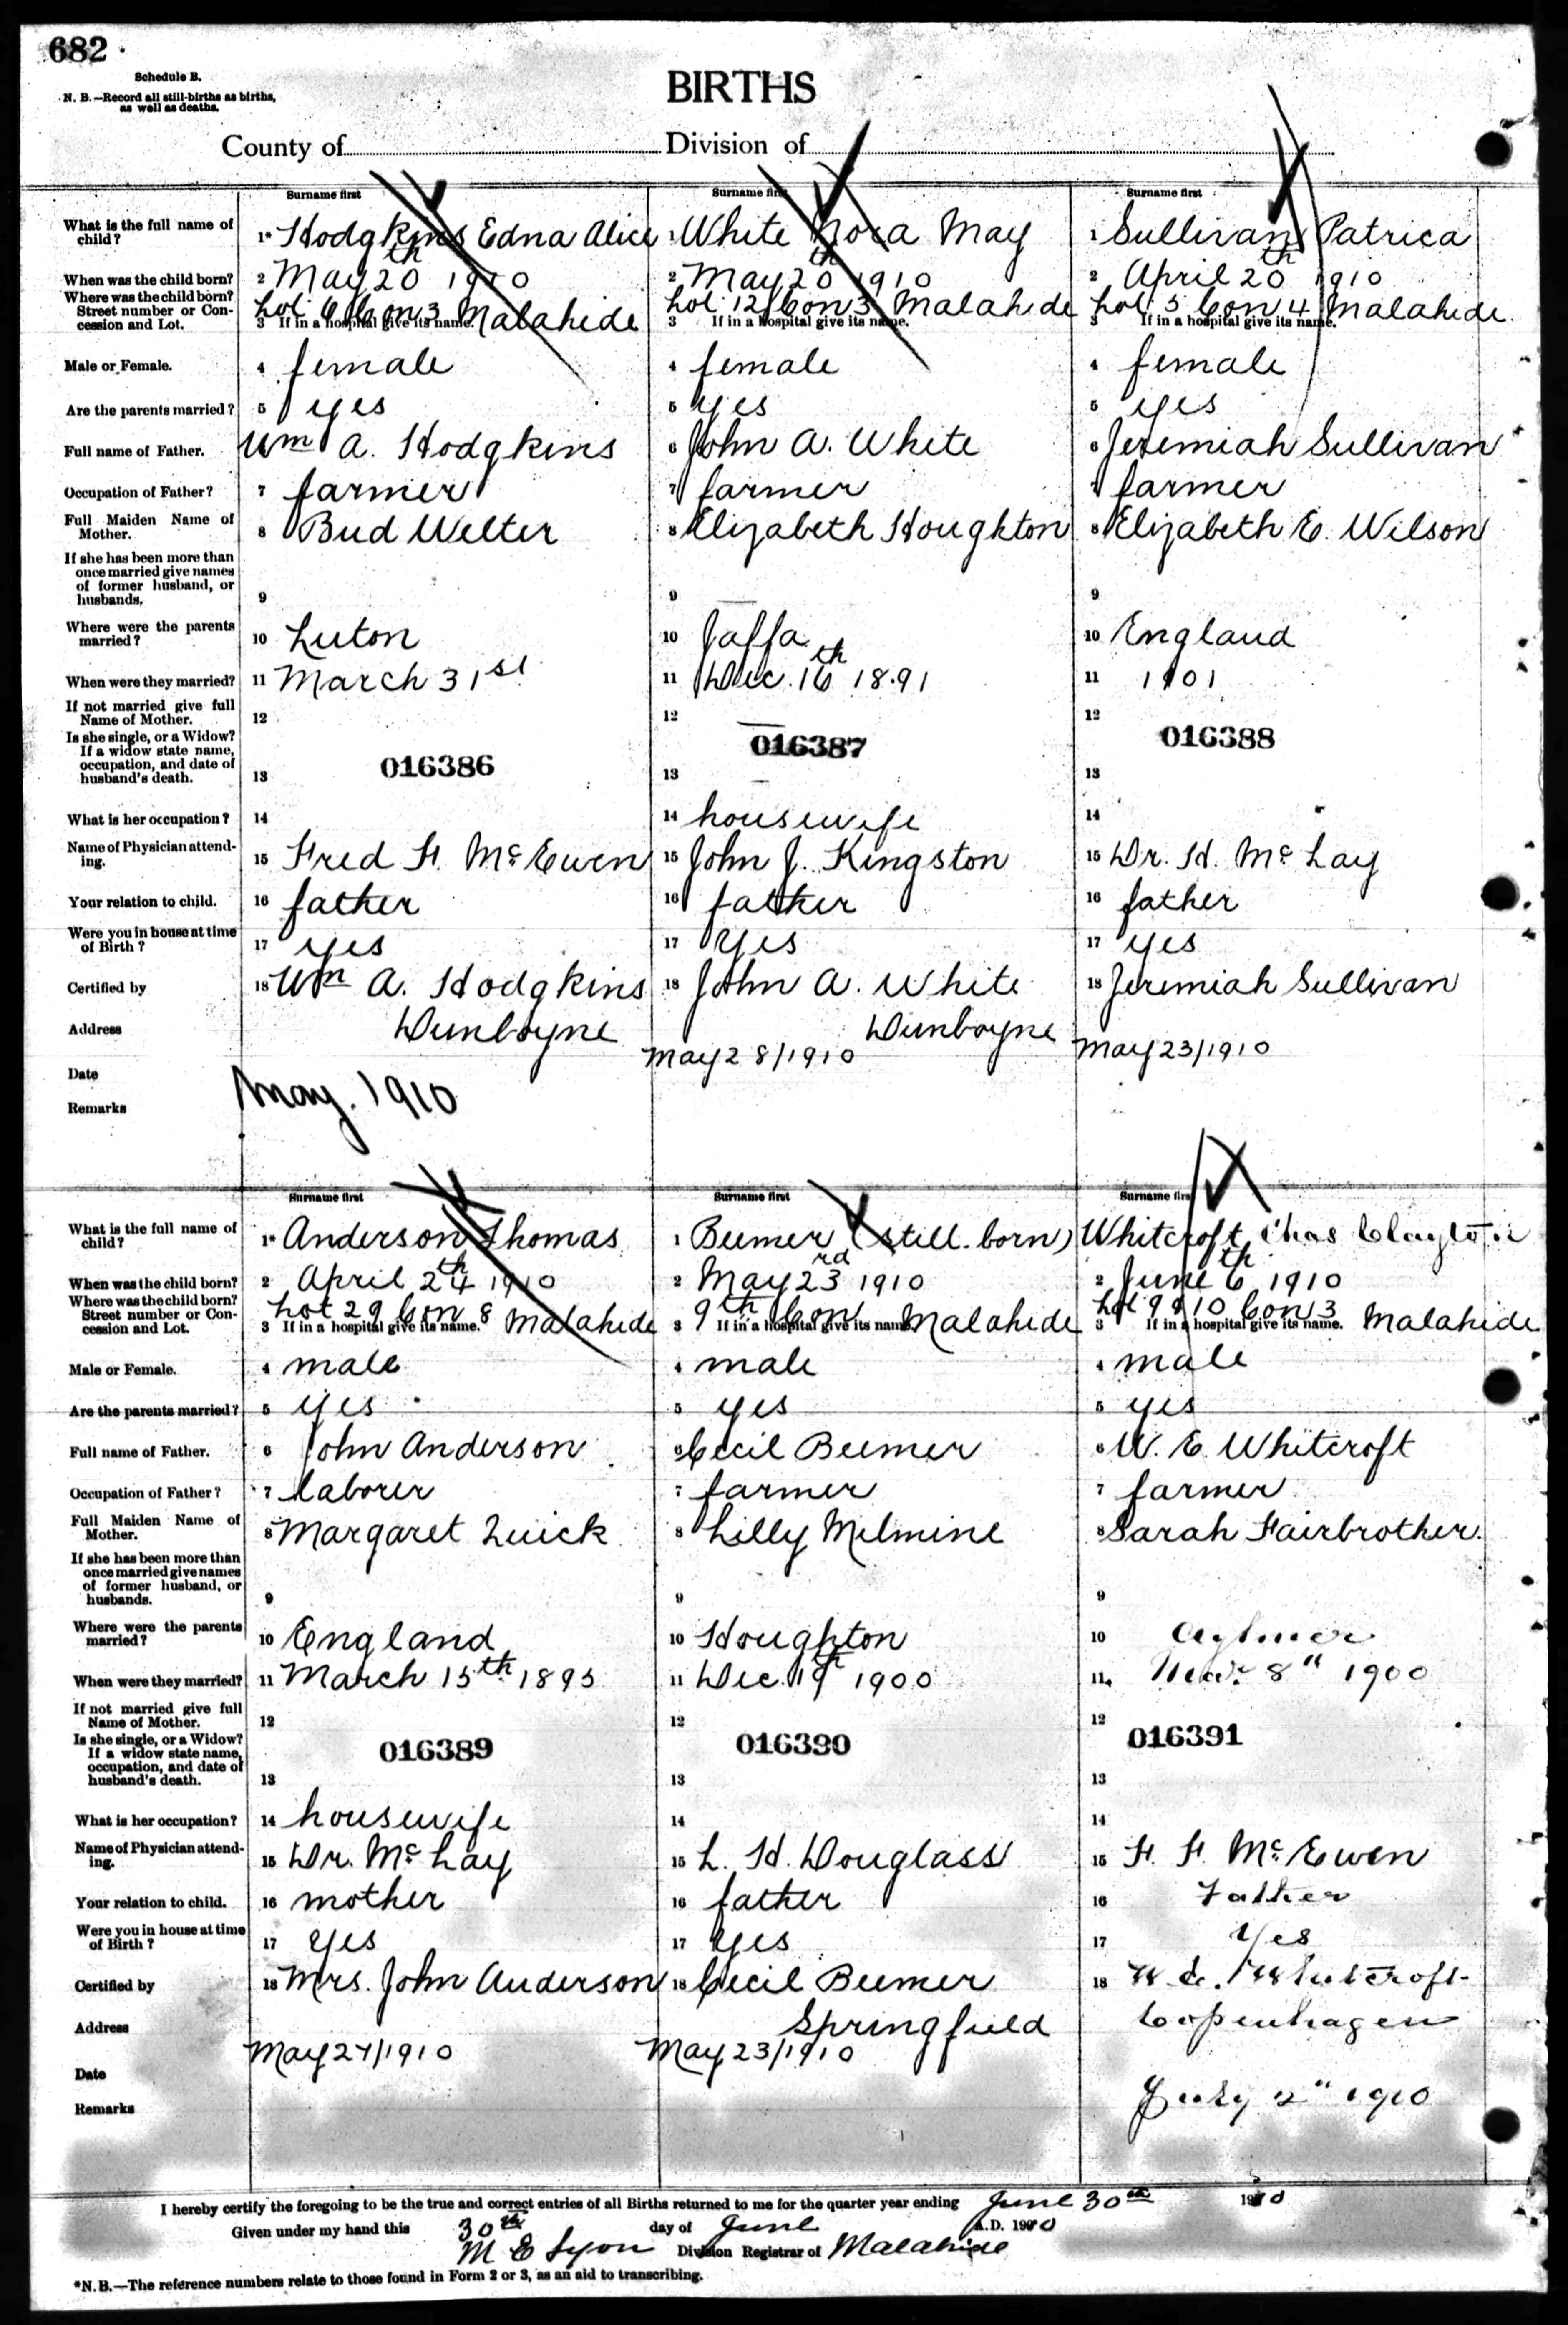 682
Schedule B.
N. B.—Record all still-births as births,
as well as deaths.
BIRTHS
County of
Division of
Surname first Surname first Surname first
What is the full name of child? 1* Hodgkins Edna Alice 1 White Nora May 1 Sullivan Patrica
When was the child born? 2 May 20th 1910 2 May 20th 1910 2 April 20th 1910
Where was the child born? Street number or Concession and Lot. Lot 6 Con 3 Malahide Lot 12 Con 3 Malahide Lot 5 Con 4 Malahide
3 If in a hospital give its name. 3 If in a hospital give its name. 3 If in a hospital give its name.
Male or Female. 4 female 4 female 4 female
Are the parents married? 5 yes 5 yes 5 yes
Full name of Father. Wm A. Hodgkins 6 John A. White 6 Jeremiah Sullivan
Occupation of Father? 7 farmer 7 farmer 7 farmer
Full Maiden Name of Mother. 8 Bud Welter 8 Elizabeth Houghton 8 Elizabeth E. Wilson
If she has been more than once married give names of former husband, or husbands. 9 9 — 9
Where were the parents married? 10 Luton 10 Jaffa 10 England
When were they married? 11 March 31st 11 Dec. 16th 1891 11 1901
If not married give full Name of Mother. 12 12 — 12
Is she single, or a Widow? If a widow state name, occupation, and date of husband's death. 13 016386 13 016387 — 13 016388
What is her occupation? 14 14 housewife 14
Name of Physician attending. 15 Fred F. McEwen 15 John J. Kingston 15 Dr. H. McLay
Your relation to child. 16 father 16 father 16 father
Were you in house at time of Birth? 17 yes 17 yes 17 yes
Certified by 18 Wm A. Hodgkins 18 John A. White 18 Jeremiah Sullivan
Address Dunboyne Dunboyne
Date May 28/1910 May 23/1910
May. 1910
Remarks
Surname first Surname first Surname first
What is the full name of child? 1* Anderson Thomas 1 Beemer (still born) Whitcroft Chas Clayton
When was the child born? 2 April 24th 1910 2 May 23rd 1910 2 June 6th 1910
Where was the child born? Street number or Concession and Lot. Lot 29 Con 8 Malahide 9th Con Malahide Lot 9 & 10 Con 3 Malahide
3 If in a hospital give its name. 3 If in a hospital give its name. 3 If in a hospital give its name.
Male or Female. 4 male 4 male 4 male
Are the parents married? 5 yes 5 yes 5 yes
Full name of Father. 6 John Anderson 6 Cecil Beemer 6 W. E. Whitcroft
Occupation of Father? 7 laborer 7 farmer 7 farmer
Full Maiden Name of Mother. 8 Margaret Luick 8 Lilly Melmine 8 Sarah Fairbrother.
If she has been more than once married give names of former husband, or husbands. 9 9 9
Where were the parents married? 10 England 10 Houghton 10 Aylmer
When were they married? 11 March 15th 1895 11 Dec. 19th 1900 11 8" 1900
If not married give full Name of Mother. 12 12 12
Is she single, or a Widow? If a widow state name, occupation, and date of husband's death. 13 016389 13 016390 13 016391
What is her occupation? 14 housewife 14 14
Name of Physician attending. 15 Dr. McLay 15 L. H. Douglass 15 F. F. McEwen
Your relation to child. 16 mother 16 father 16 Father
Were you in house at time of Birth? 17 yes 17 yes 17 Yes
Certified by 18 Mrs. John Anderson 18 Cecil Beemer 18 W. E. Whitcroft
Address Springfield Copenhagen
Date May 24/1910 May 23/1910 July 2" 1910
Remarks
I hereby certify the foregoing to be the true and correct entries of all Births returned to me for the quarter year ending June 30th 1910
Given under my hand this 30th day of June A.D. 1910
M E Lyon Division Registrar of Malahide
*N.B.—The reference numbers relate to those found in Form 2 or 3, as an aid to transcribing.